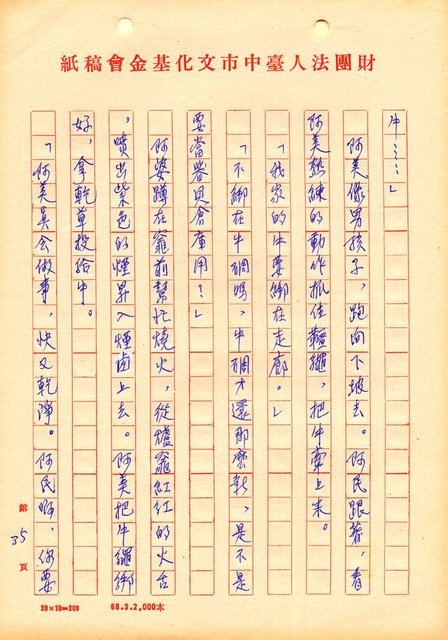 財團法人臺中市文化基金會稿紙
牛⋯⋯」
阿美像男孩子,跑向下坡去。阿民跟著,看
阿美熟練的動作抓住韁繩,把牛牽上來。
「我家的牛要綁在走廊。」
「不綁在牛稠嗎,牛稠才還那麼新,是不是
要當餐具倉庫用?」
阿婆蹲在竈前幫忙燒火,從爐竈紅紅的火舌
,噴出紫色的煙昇入煙鹵上去。阿美把牛繩綁
好,拿乾草投給牛。
「阿美真會做事,快又乾淨。阿民啊,你要
第35頁
20×10=200
68.3.2,000本